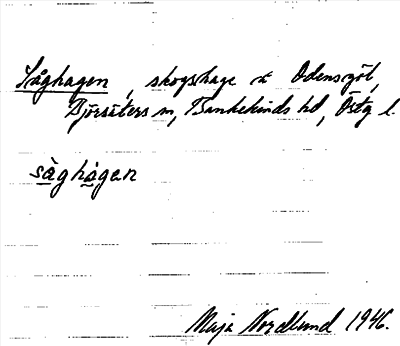 Såghagen, skogshage t. Odensgöl,
Björsäters sn, Bankekinds hd, Östg l.
sàghàgen
Maja Nordlund 1946.